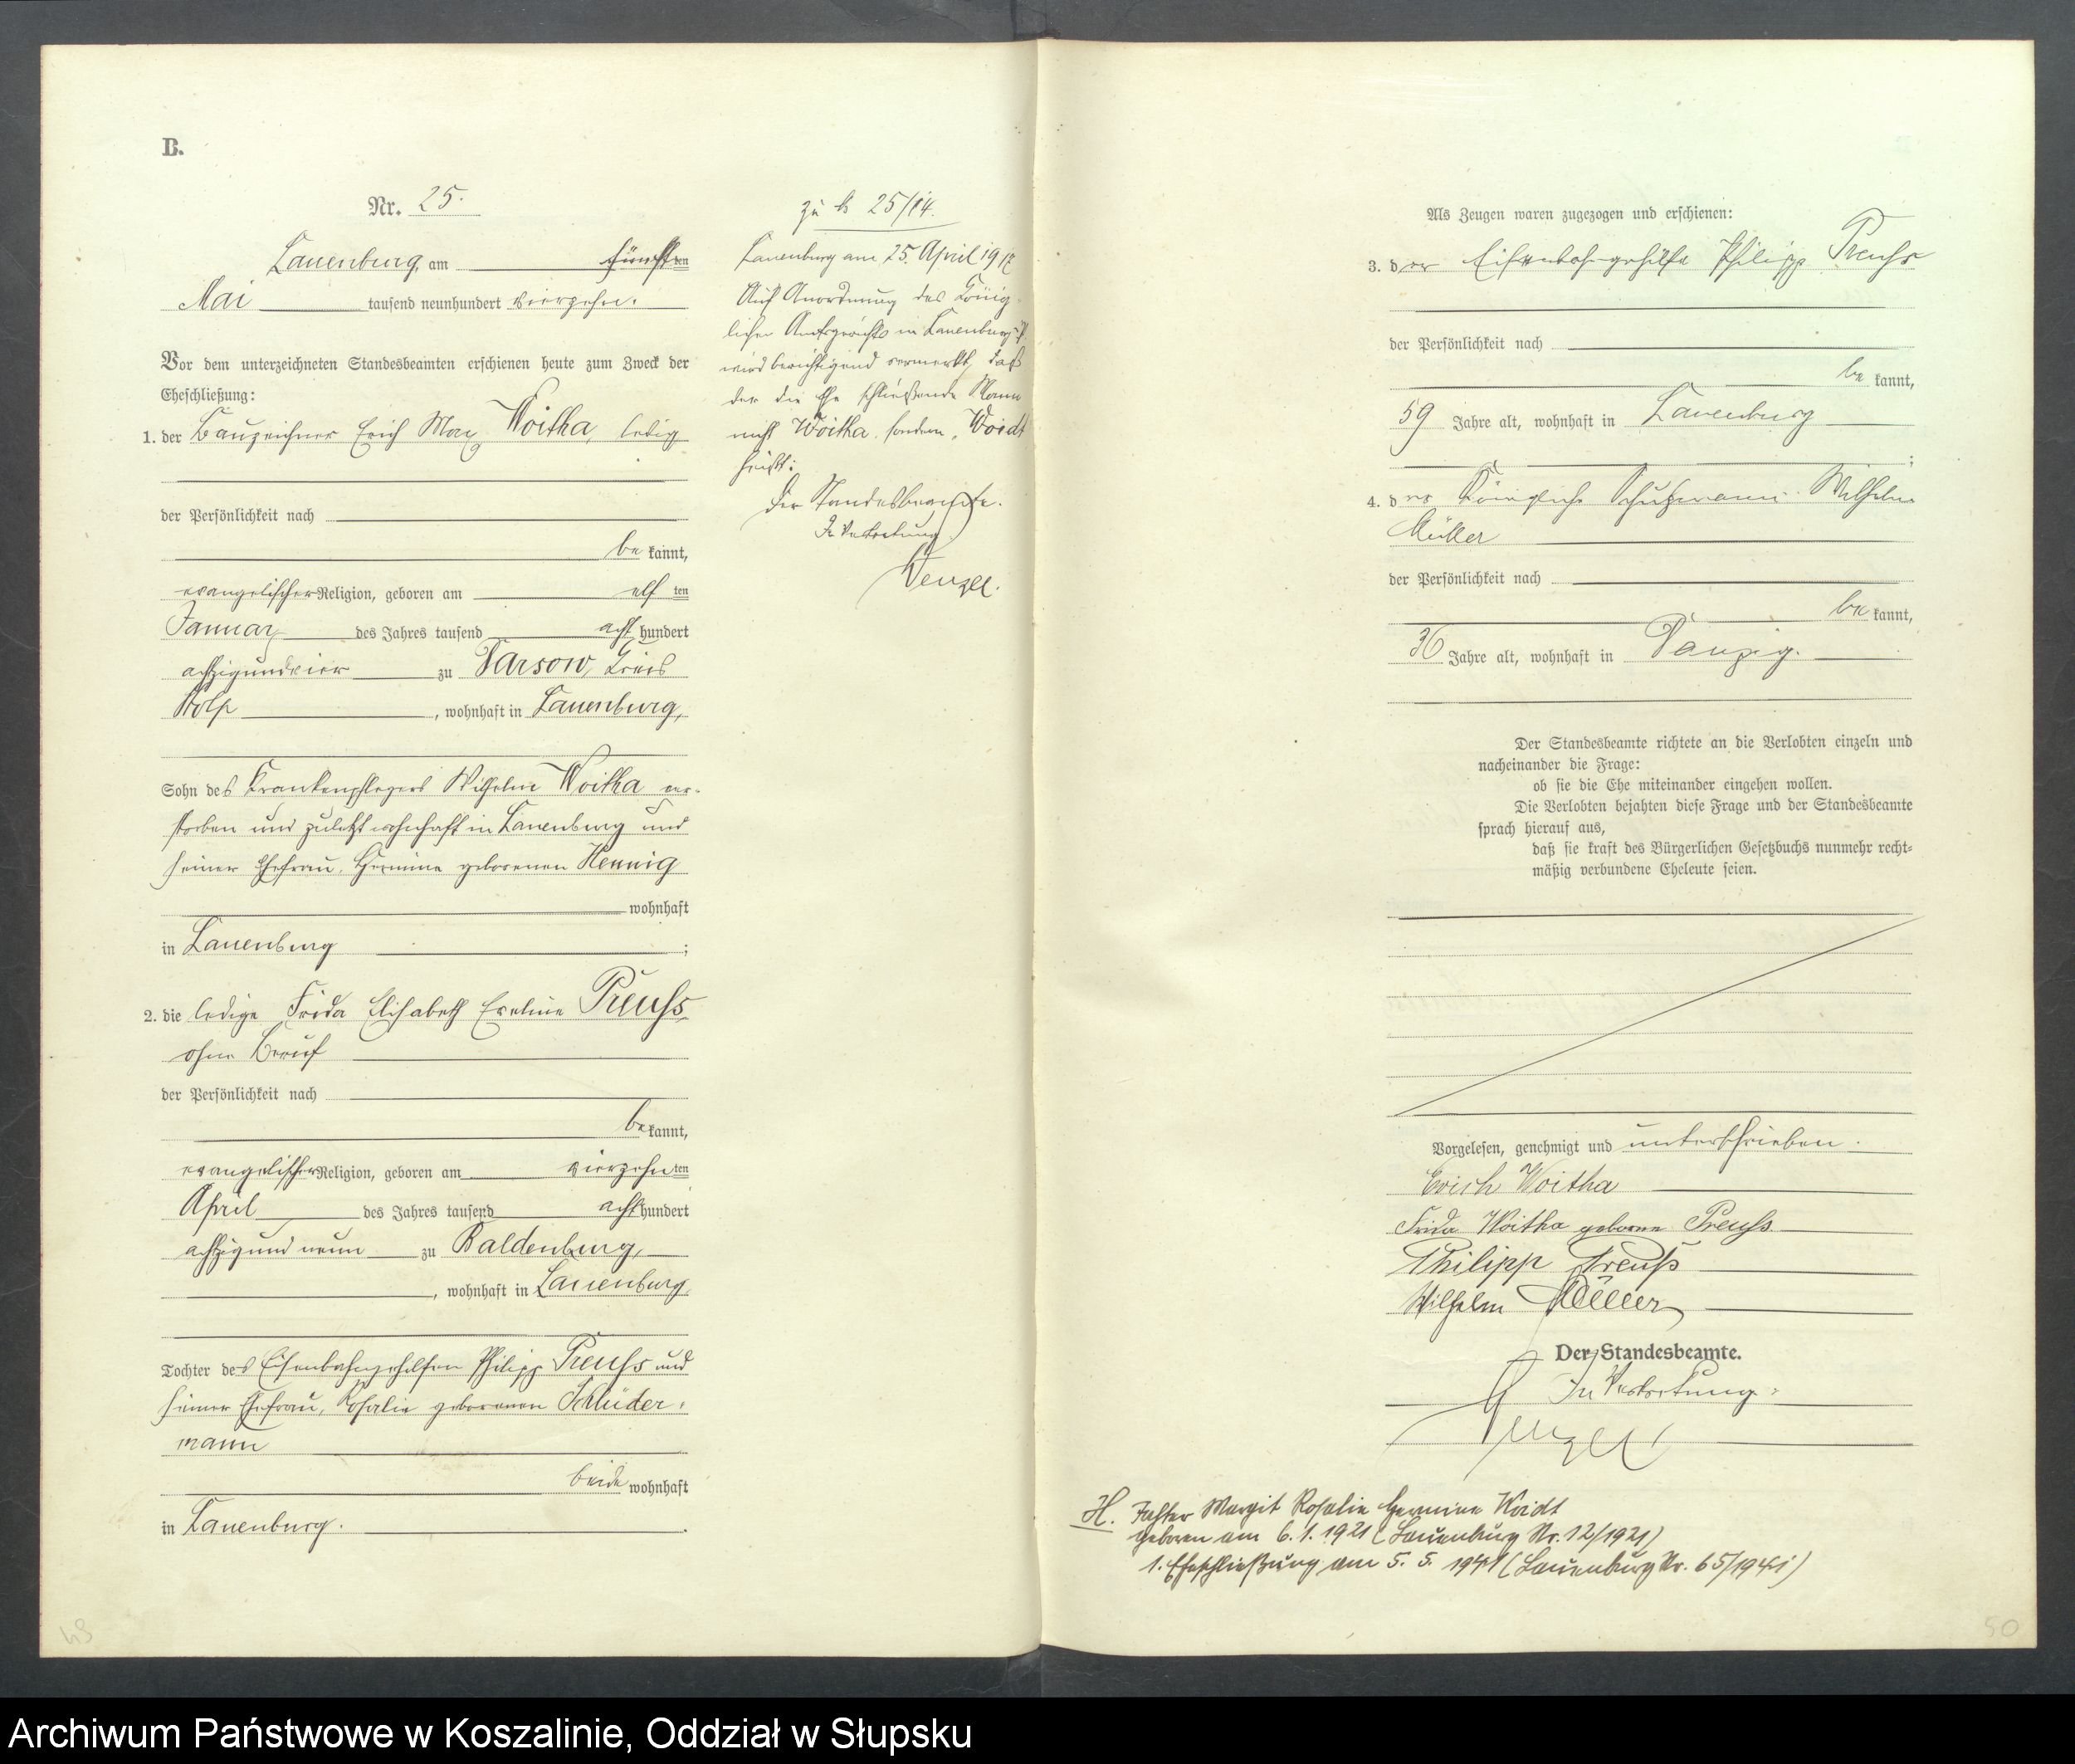 B.
Nr. 25.
Lauenburg, am fünften
Mai tausend neunhundert vierzehn.
Vor dem unterzeichneten Standesbeamten erschienen heute zum Zweck der
Eheschließung:
1. der Bauzeichner Erich Max Woitha, ledig
der Persönlichkeit nach
be kannt,
evangelischer Religion, geboren am elf ten
Januar des Jahres tausend acht hundert
achtzigundvier zu Varsow, Kreis
Stolp, wohnhaft in Lauenburg,
Sohn des Krankenpflegers Wilhelm Woitha ver-
storben und zuletzt wohnhaft in Lauenburg und
seiner Ehefrau, Hermine geborenen Hennig
wohnhaft
in Lauenburg ;
2. die ledige Frida Elisabeth Eveline Preuss,
ohne Beruf
der Persönlichkeit nach
be kannt,
evangelischer Religion, geboren am vierzehn ten
April des Jahres tausend acht hundert
achtzigundneun zu Baldenburg,
, wohnhaft in Lauenburg,
Tochter des Eisenbahngehilfen Philipp Preuss und
seiner Ehefrau, Rosalie geborenen Schlüder-
mann
beide wohnhaft
in Lauenburg.
zu B 25/14.
Lauenburg am 25. April 1917
Auf Anordnung des König-
lichen Amtsgerichts in Lauenburg
wird berichtigend vermerkt, daß
der die Ehe schließende Mann
nicht Woitha, sondern „Woidt
heißt.
Der Standesbeamte.
In Vertretung
Wenzel.
Als Zeugen waren zugezogen und erschienen:
3. der Eisenbahngehilfe Philipp Preuss
der Persönlichkeit nach
be kannt,
59 Jahre alt, wohnhaft in Lauenburg
;
4. der Königliche Schutzmann Wilhelm
Müller
der Persönlichkeit nach
be kannt,
36 Jahre alt, wohnhaft in Danzig.
Der Standesbeamte richtete an die Verlobten einzeln und
nacheinander die Frage:
ob sie die Ehe miteinander eingehen wollen.
Die Verlobten bejahten diese Frage und der Standesbeamte
sprach hierauf aus,
daß sie kraft des Bürgerlichen Gesetzbuchs nunmehr recht-
mäßig verbundene Eheleute seien.
Vorgelesen, genehmigt und unterschrieben.
Erich Woitha
Frida Woitha geborene Preuss
Philipp Preuß
Wilhelm Müller
Der Standesbeamte.
In Vertretung:
Wenzel
H. Tochter Margit Rosalie Hermine Woidt
geboren am 6.1.1921 (Lauenburg Nr. 12/1921)
1. Eheschließung am 5.5.1941 (Lauenburg Nr. 65/1941)
49
50
Archiwum Państwowe w Koszalinie, Oddział w Słupsku